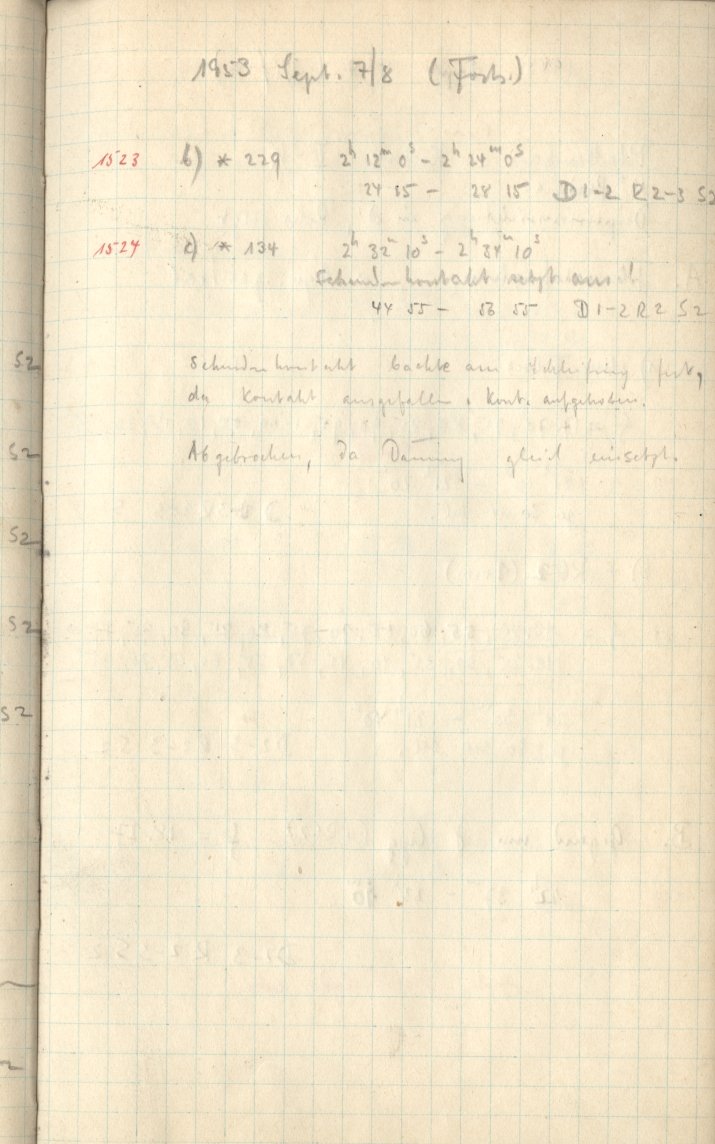 1953 Sept. 7/8 (Forts.)
1523 b) * 229 2ʰ 12ᵐ 0ˢ – 2ʰ 24ᵐ 0ˢ
24 15 – 28 15 D 1–2 R 2–3 S2
1524 c) * 134 2ʰ 32ᵐ 10ˢ – 2ʰ 34ᵐ 10ˢ
Sekundenkontakt setzt aus!
44 55 – 56 55 D 1–2 R 2 S 2
S2 Sekundenkontakt backte am Schleifring fest,
da Kontakt ausgefallen. Kont. aufgehoben.
S2 Abgebrochen, da Dämmung gleich einsetzt.
S2
S2
S2